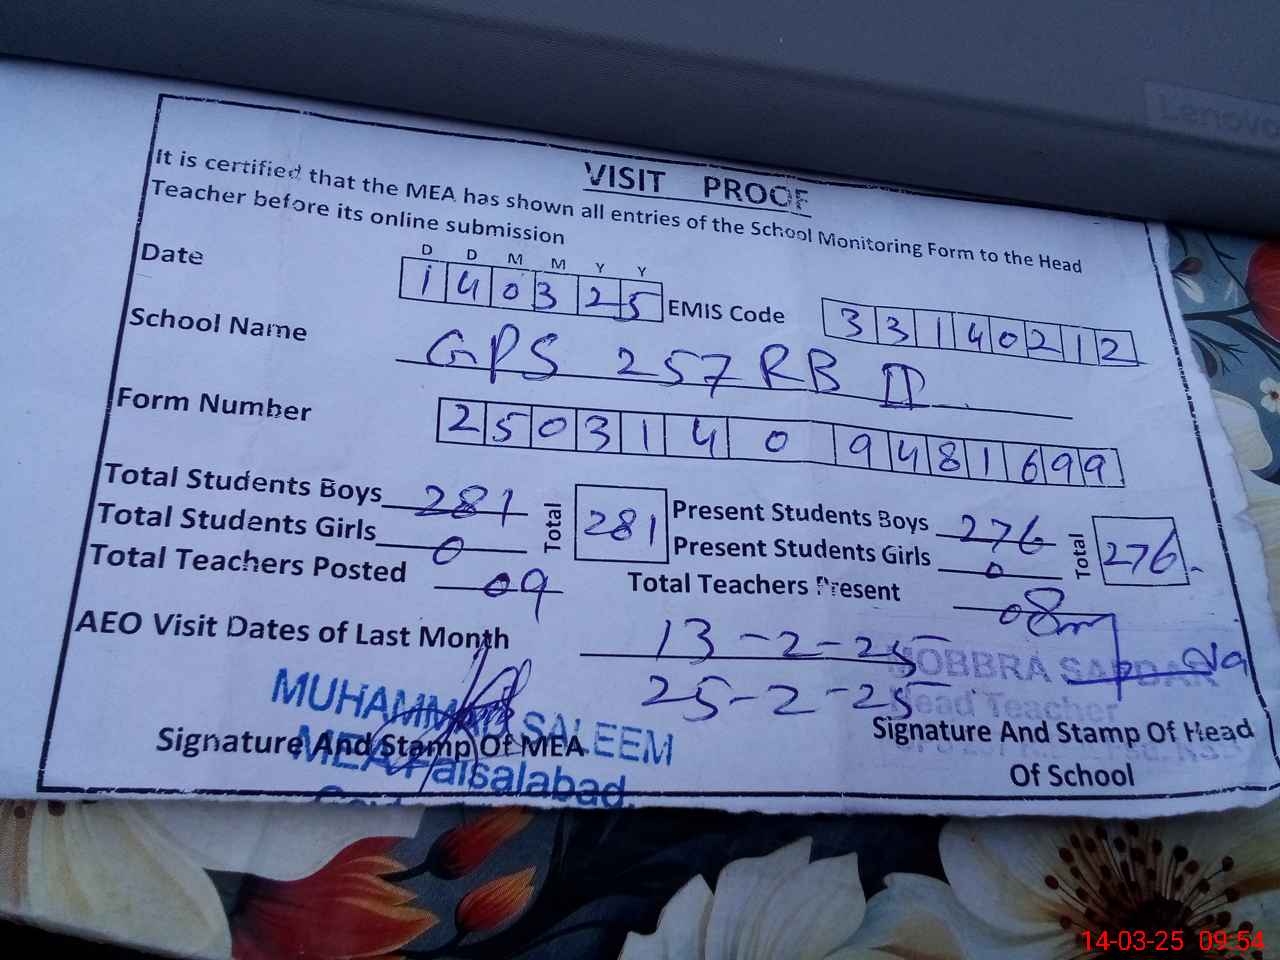 Lenovo
VISIT PROOF
It is certified that the MEA has shown all entries of the School Monitoring Form to the Head
Teacher before its online submission
D D M M Y Y
Date 140325 EMIS Code 33140212
School Name GPS 257 RB II
Form Number 25031409481699
Total Students Boys 281 Total 281 Present Students Boys 276 Total 276
Total Students Girls 0 Present Students Girls 0
Total Teachers Posted 09 Total Teachers Present 08
AEO Visit Dates of Last Month 13-2-25
25-2-25
MUHAMMAD SALEEM
MEA Faisalabad.
Signature And Stamp Of MEA
Head Teacher
Signature And Stamp Of Head
Of School
14-03-25 09:54